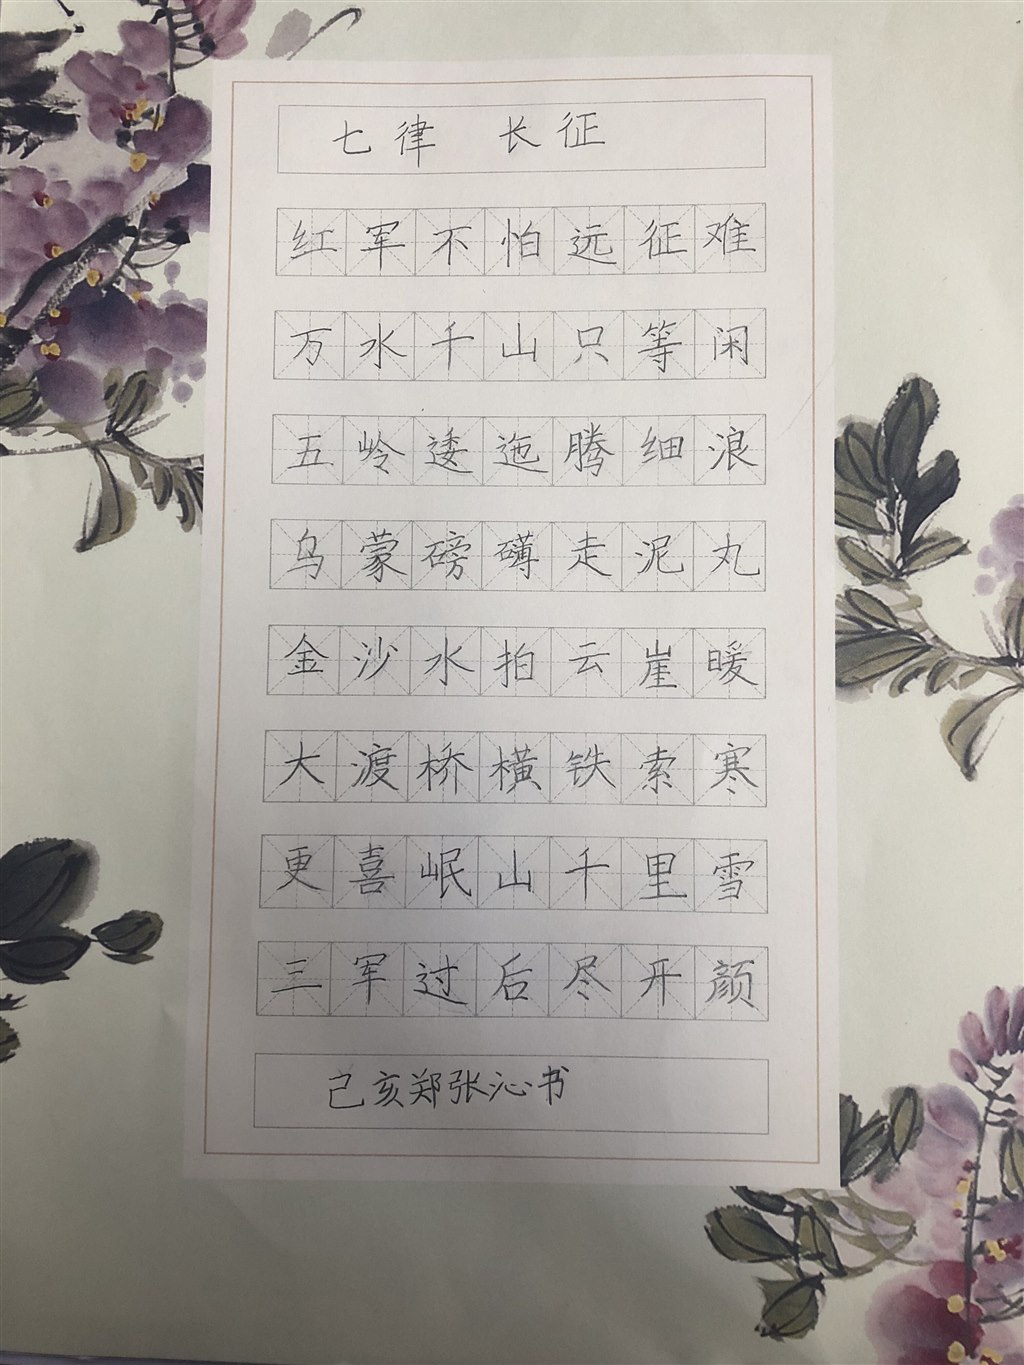 七律 长征
红军不怕远征难
万水千山只等闲
五岭逶迤腾细浪
乌蒙磅礴走泥丸
金沙水拍云崖暖
大渡桥横铁索寒
更喜岷山千里雪
三军过后尽开颜
己亥郑张沁书